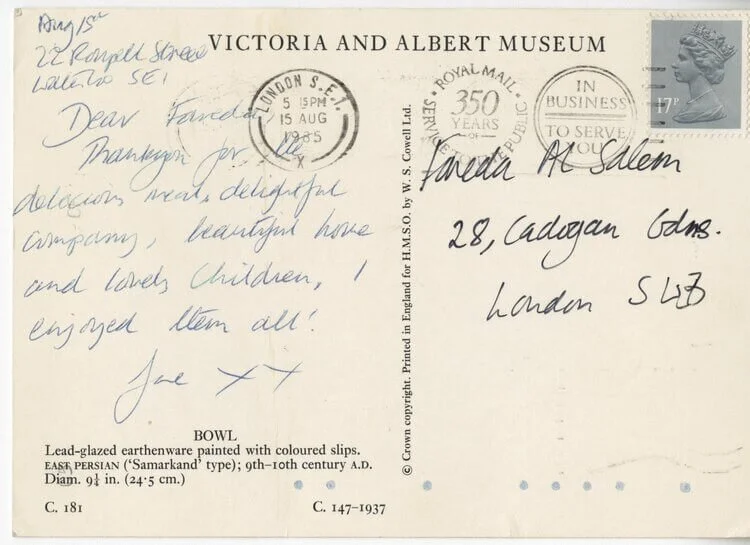 Aug 15th
22 Roupell Street
Waterloo SE1
VICTORIA AND ALBERT MUSEUM
LONDON S.E.1.
5 15PM
15 AUG
1985
X
ROYAL MAIL
350
YEARS
OF
SERVICE TO THE PUBLIC
IN
BUSINESS
TO SERVE
YOU
17P
Dear Fareda,
Thankyou for the
delicious meal, delightful
company, beautiful home
and lovely children, I
enjoyed them all!
XX
Fareda Al Salem
28, Cadogan Gdns.
London SW3
© Crown copyright. Printed in England for H.M.S.O. by W. S. Cowell Ltd.
BOWL
Lead-glazed earthenware painted with coloured slips.
EAST PERSIAN ('Samarkand' type); 9th–10th century A.D.
Diam. 9¼ in. (24·5 cm.)
C. 181
C. 147–1937